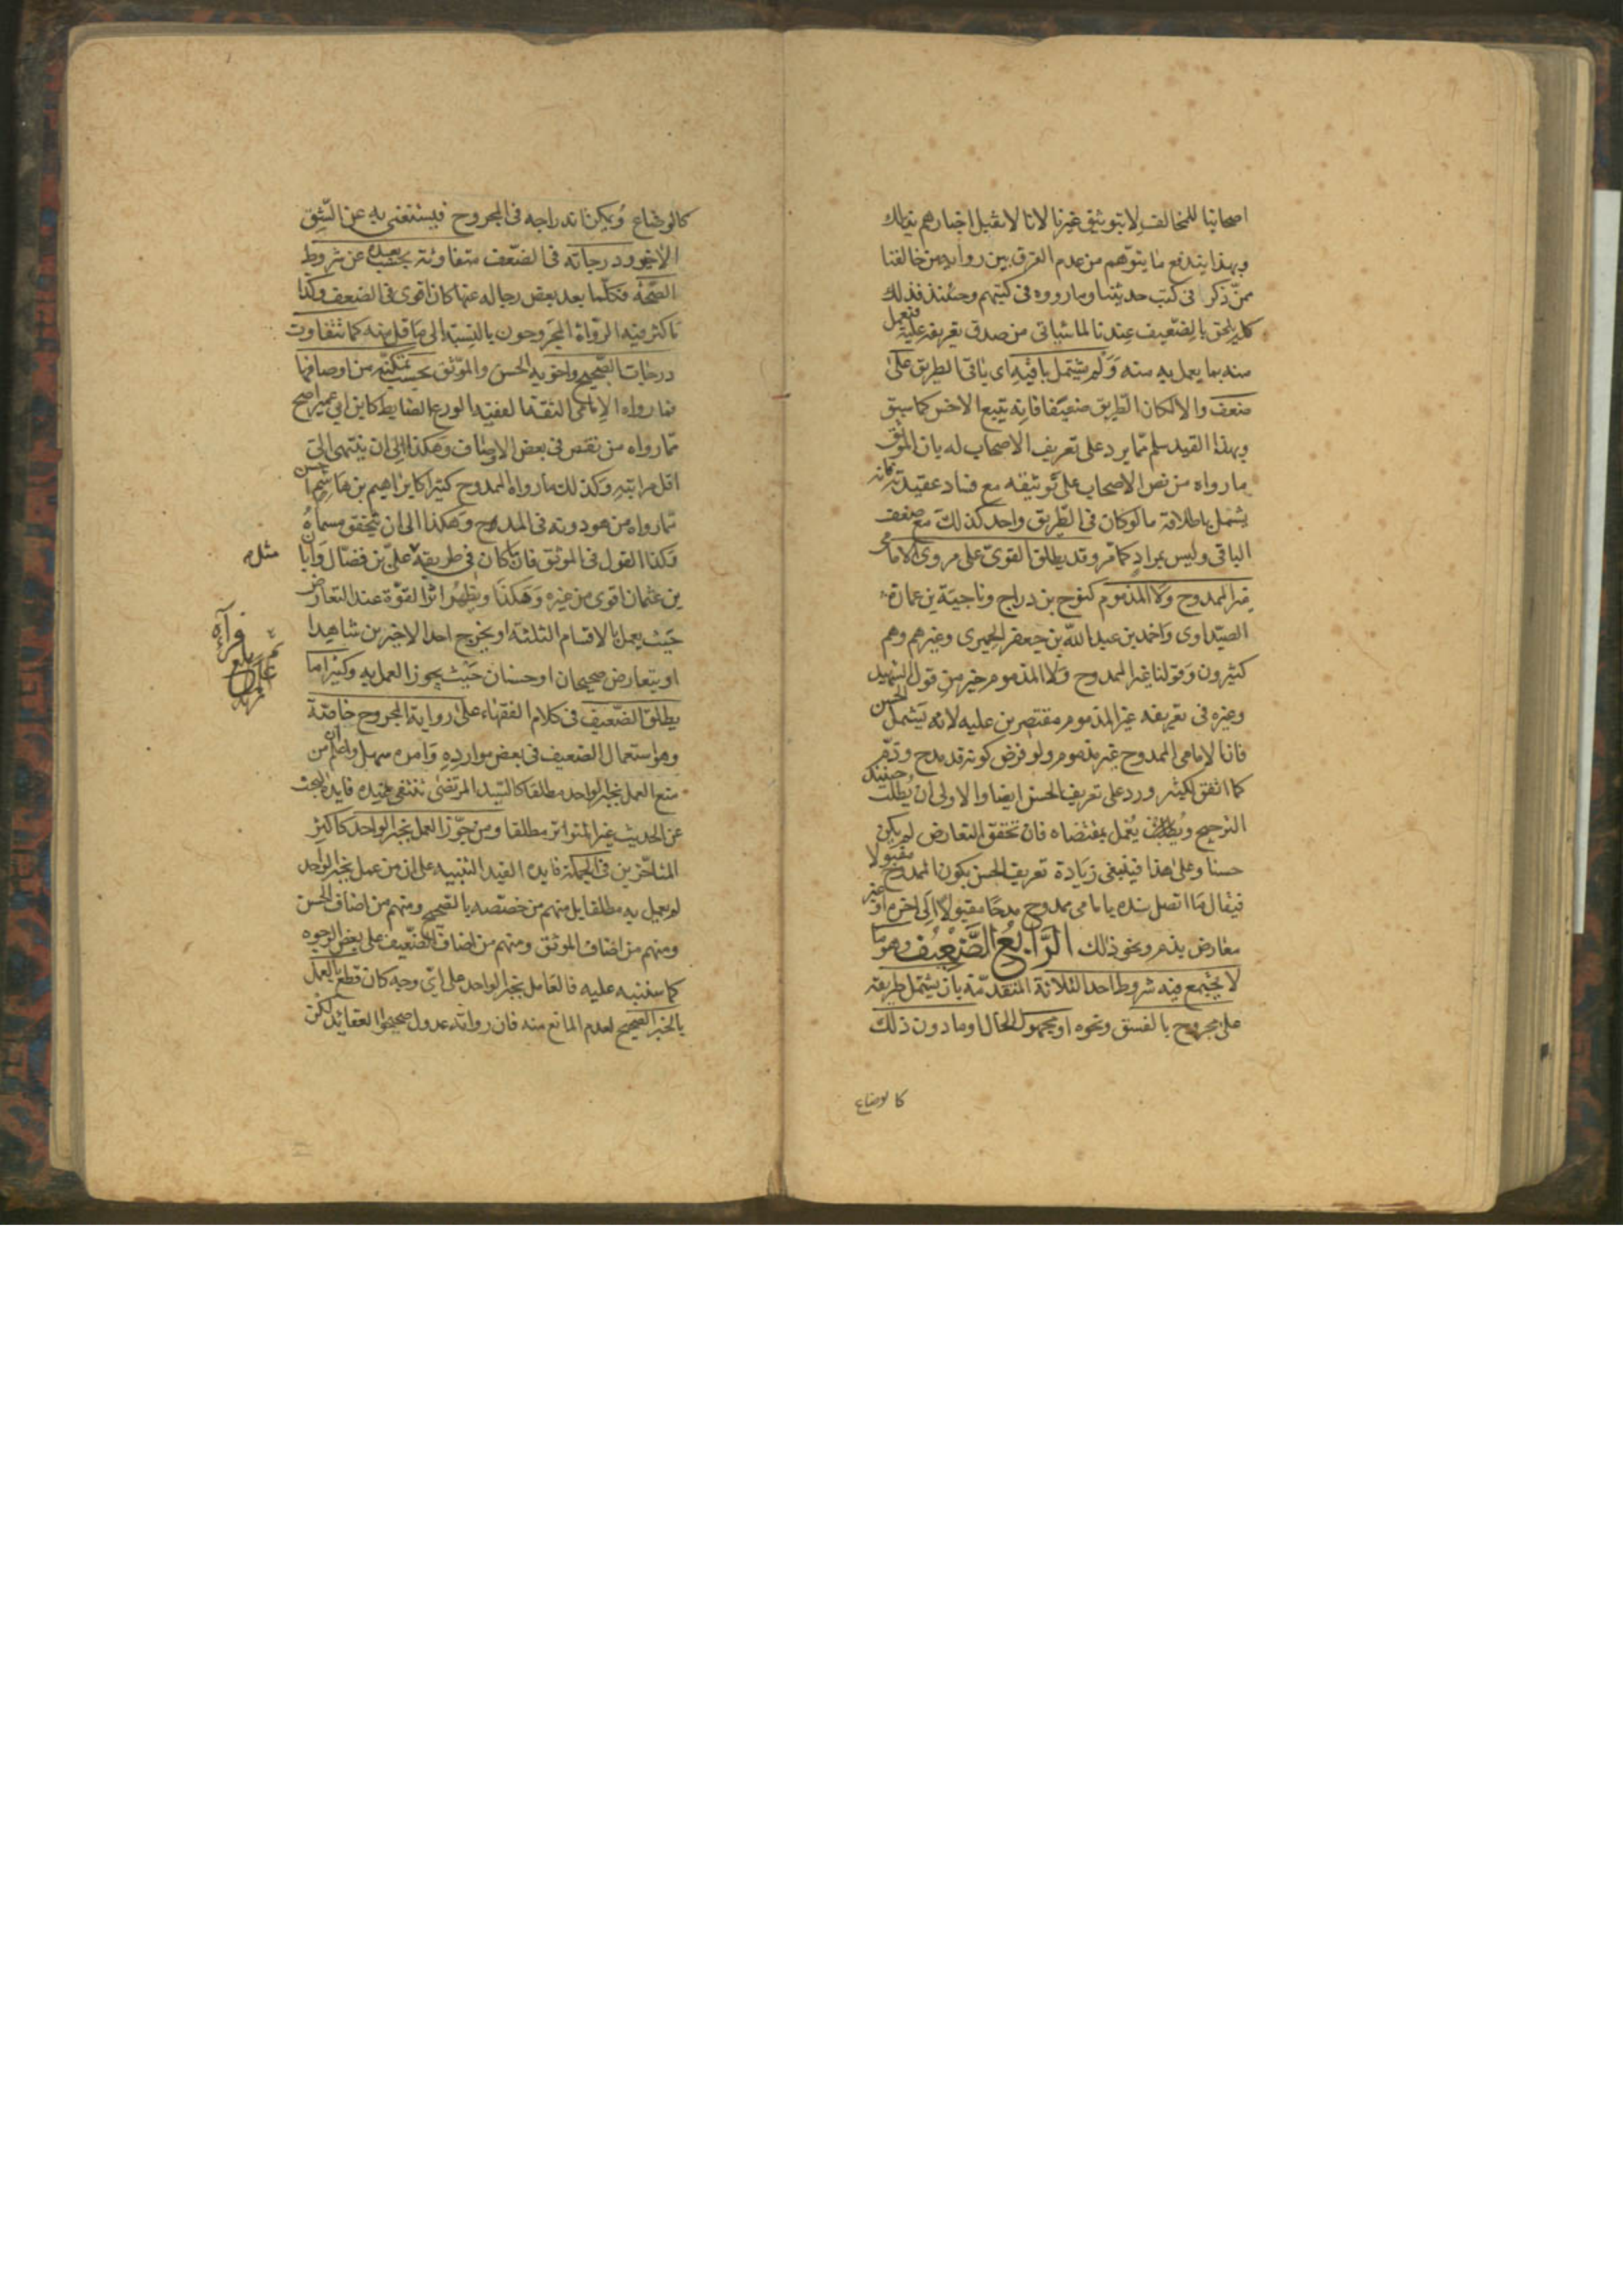 اصحابنا للمخالف لا بتوثيق غيرنا لانا لا نقبل اخبارهم بذلك
وبهذا يندفع ما يتوهم من عدم الفرق بين رواية من خالفنا
ممن ذكر في كتب حديثنا وما رووه في كتبهم وحينئذ فذلك
كله يلحق بالضعيف عندنا لما سياتى من صدق تعريفه عليه فيعمل
منه بما يعمل به منه ولم يشتمل باقيه اى باقى الطريق على
ضعف والا لكان الطريق ضعيفا فانه يتبع الاخس كما سبق
وبهذا القيد سلم مما يرد على تعريف الاصحاب له بان الموثق
ما رواه من نص الاصحاب على توثيقه مع فساد عقيدته فانه
يشتمل باطلاقه ما لو كان فى الطريق واحد كذلك مع ضعف
الباقى وليس بمراد كما مر وقد يطلق القوى على مروى الامامى
غير الممدوح ولا المذموم كنوح بن دراج وناجية بن عمارة
الصيداوى واحمد بن عبد الله بن جعفر الحميرى وغيرهم وهم
كثيرون وقولنا غير الممدوح ولا المذموم خير من قول الشهيد
وغيره فى تعريفه غير المذموم مقتصرين عليه لانه يشمل الحسن
فان الامامى الممدوح غير مذموم ولو فرض كونه قد مدح وذم
كما اتفق لكثير ورد على تعريف الحسن ايضا والاولى ان يطلب حينئذ
الترجيح ويعمل بمقتضاه فان تحقق التعارض لم يكن
حسنا وعلى هذا فينبغى زيادة تعريف الحسن بكون المدح مقبولا
فيقال ما اتصل سنده بامامى ممدوح مدحا مقبولا الى اخره او غير
معارض بذم ونحو ذلك الرابع الضعيف وهو ما
لا يجتمع فيه شروط احد الثلاثة المتقدمة بان يشتمل طريقه
على مجروح بالفسق ونحوه او مجهول الحال او ما دون ذلك
كالوضاع
كالوضاع ويمكن اندراجه فى المجروح فيستغنى به عن الشق
الاخر ودرجاته فى الضعف متفاوتة بحسب بعده عن شروط
الصحة فكلما بعد بعض رجاله عنها كان اقوى فى الضعف وكذا
ما كثر فيه الرواة المجروحون بالنسبة الى ما قل منه كما تتفاوت
درجات الصحيح واخويه الحسن والموثق بحسب تمكنه من اوصافها
فما رواه الامامى الثقة الفقيه الورع الضابط كابن ابى عمير اصح
مما رواه من نقص فى بعض الاوصاف وهكذا الى ان ينتهى الى
اقل مراتبه وكذلك ما رواه الممدوح كثيرا كابراهيم بن هاشم احسن
مما رواه من هو دونه فى المدح وهكذا الى ان يتحقق مسماه
وكذا القول فى الموثق فان ما كان فى طريقه على بن فضال وابان
مثل
بن عثمان اقوى من غيره وهكذا ويظهر اثر القوة عند التعارض
حيث يعمل بالاقسام الثلثة او يخرج احد الاخيرين شاهدا
او يتعارض صحيحان او حسنان حيث يجوز العمل به وكثيرا ما
يطلق الضعيف فى كلام الفقهاء على رواية المجروح خاصة
وهو استعمال الضعيف فى بعض موارده وامره سهل واعلم ان من
منع العمل بخبر الواحد مطلقا كالسيد المرتضى تنتفى عنده فايدة البحث
عن الحديث غير المتواتر مطلقا ومن جوز العمل بخبر الواحد كاكثر
المتاخرين فى الجملة فايده القيد التنبيه على ان من عمل بخبر الواحد
لم يعمل به مطلقا بل منهم من خصصه بالصحيح ومنهم من اضاف الحسن
ومنهم من اضاف الموثق ومنهم من اضاف الضعيف على بعض الوجوه
كما سننبه عليه فالعامل بخبر الواحد على اى وجه كان قطع بالعمل
بالخبر الصحيح لعدم المانع منه فان رواته عدول صحيحوا العقايد لكن